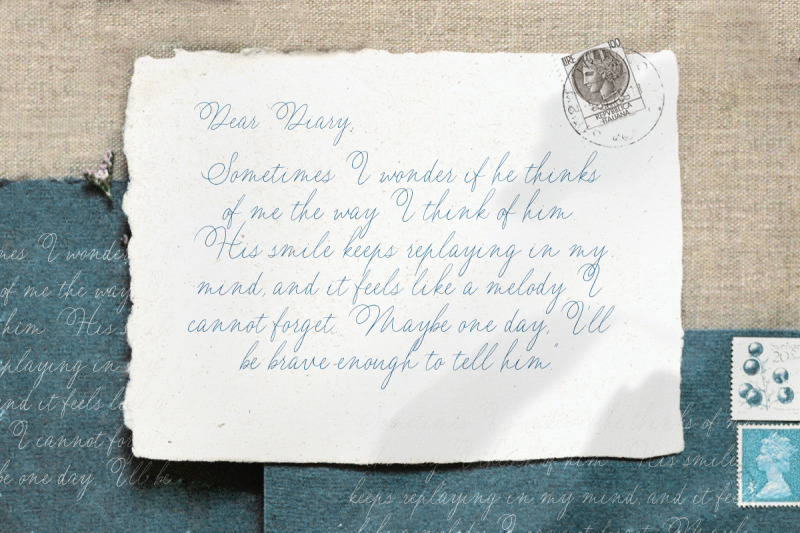 LIRE 100
REPVBBLICA
ITALIANA
Dear Diary,
Sometimes I wonder if he thinks
of me the way I think of him.
His smile keeps replaying in my
mind, and it feels like a melody I
cannot forget. Maybe one day, I'll
be brave enough to tell him"
es. I wonder
of me the way
him. His s
playing in my
nd it feels l
I cannot for
e one day, I'll be
thinks of m
His smile
keeps replaying in my mind, and it fee